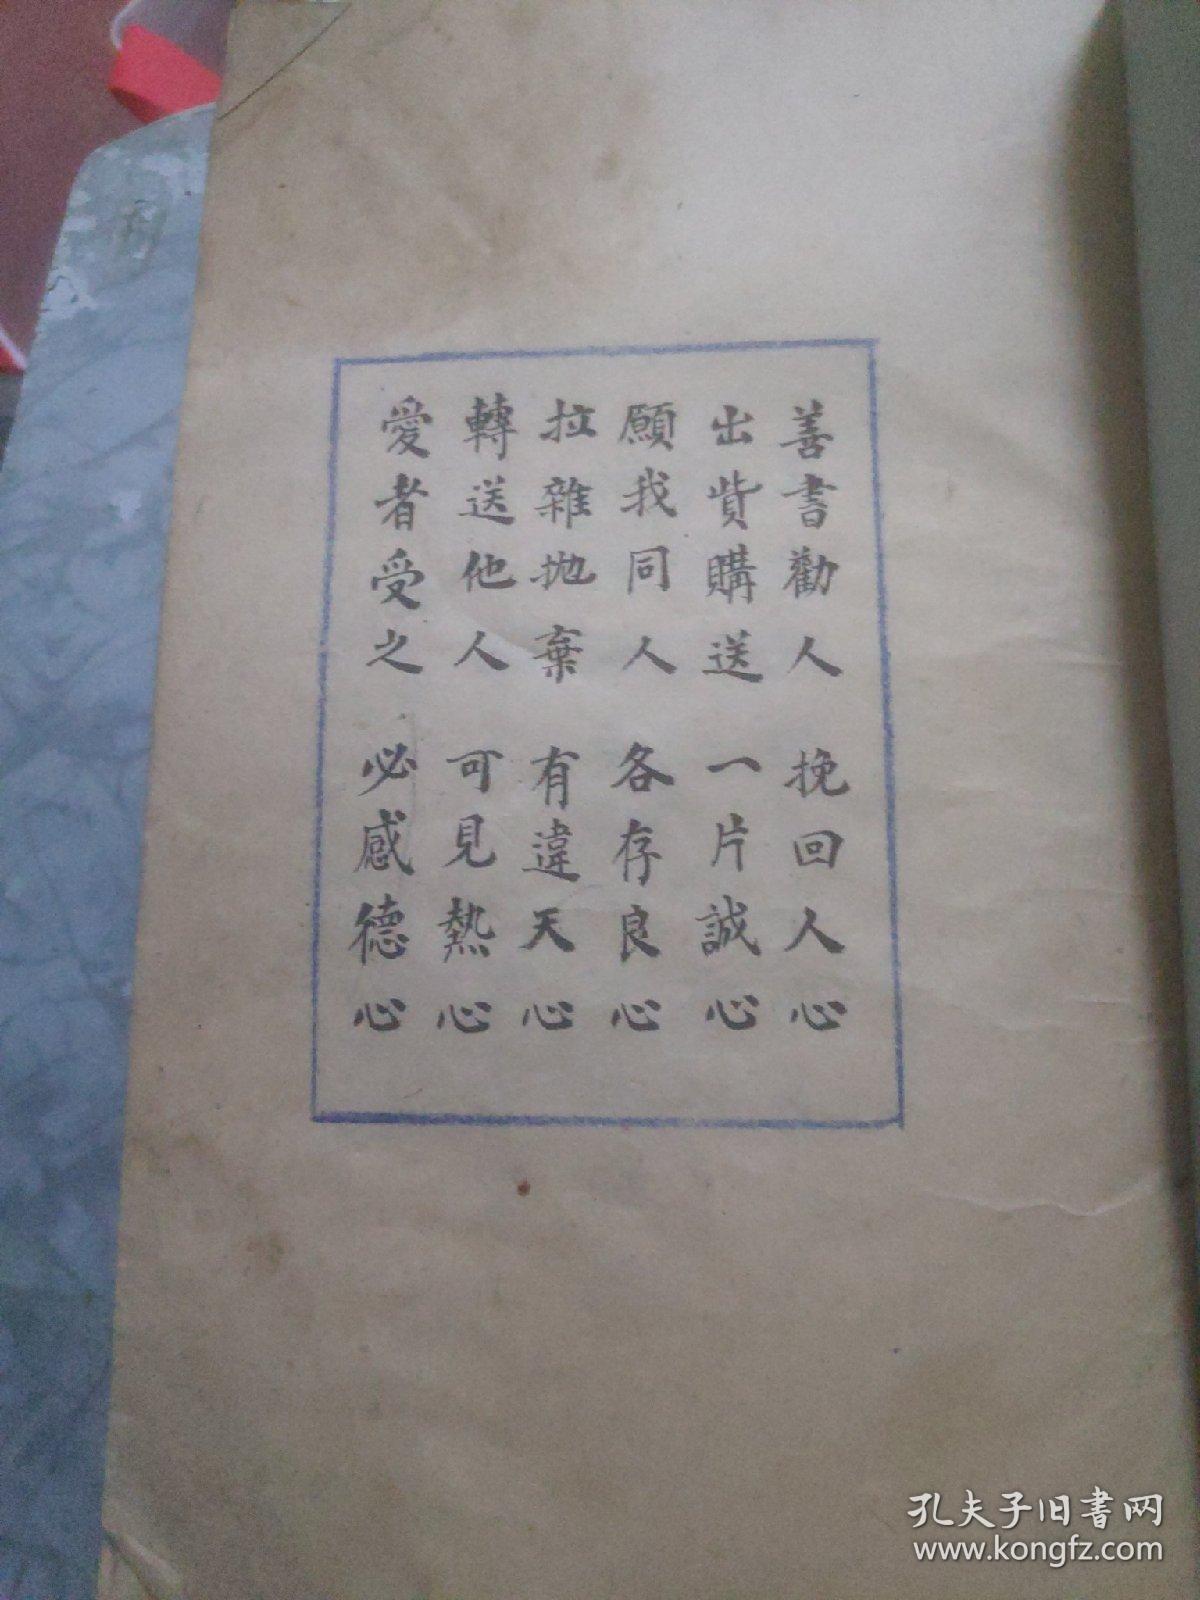 善書勸人 挽回人心
出貲購送 一片誠心
願我同人 各存良心
拉雜拋棄 有違天心
轉送他人 可見熱心
愛者受之 必感德心
孔夫子旧书网
www.kongfz.com